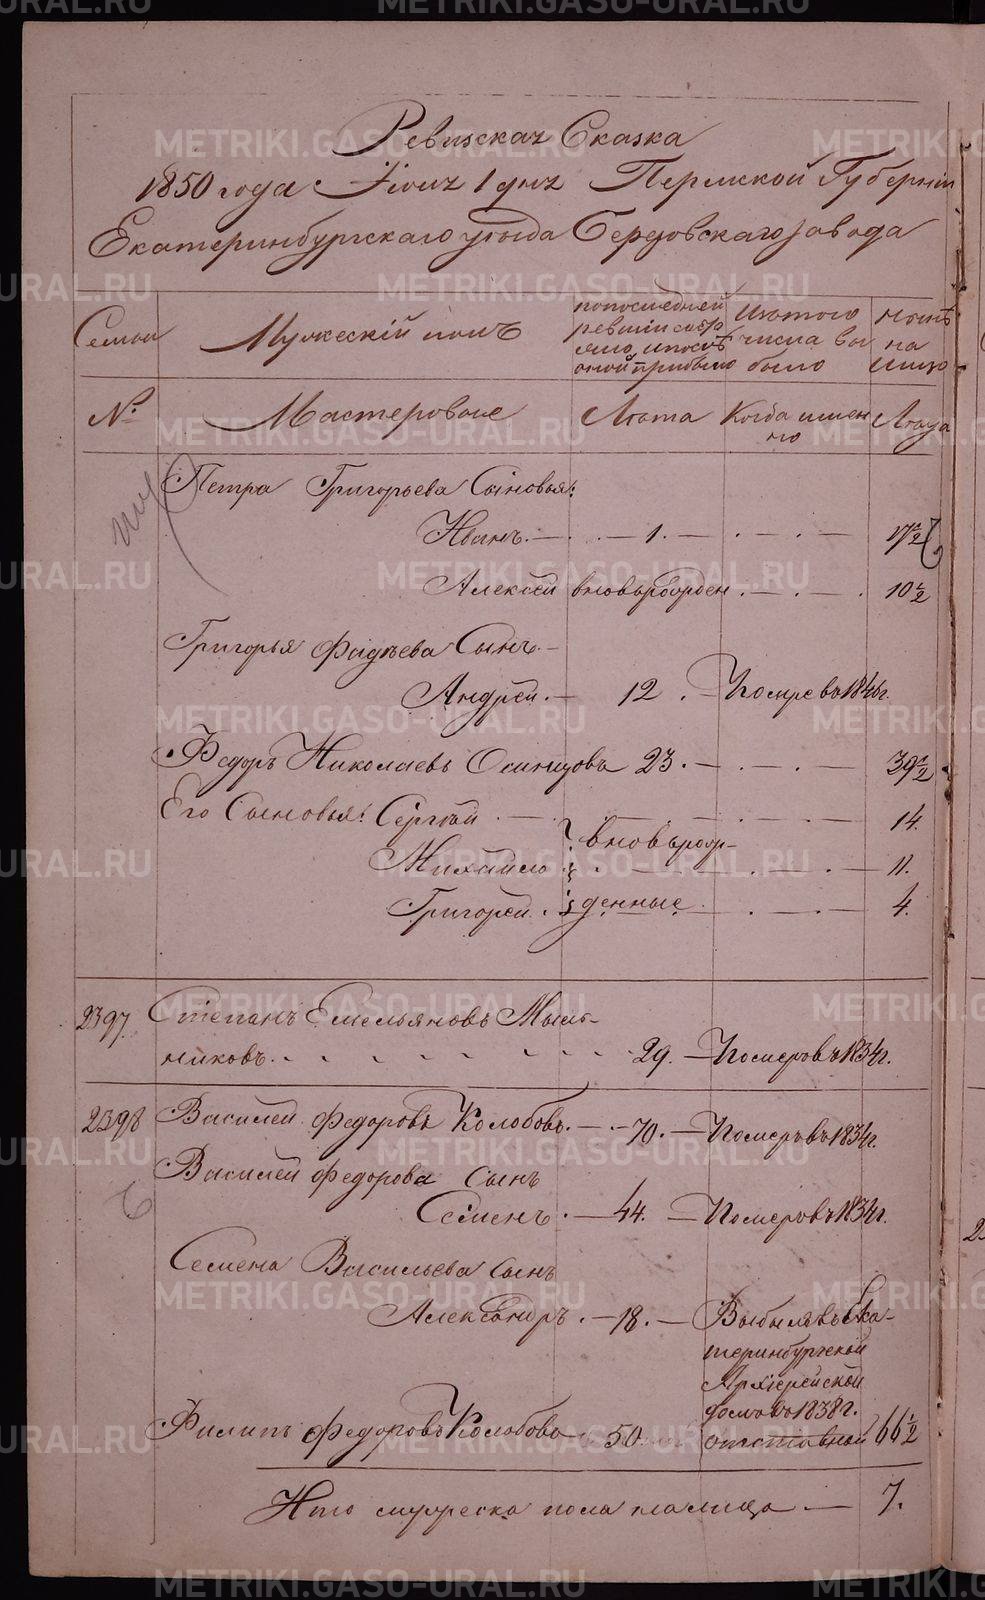 Ревизская Сказка
1850 года Июня 1 дня Пермской Губернiи
Екатеринбургскаго уезда завода
Семьи
Мужескiй полъ
по последней ревизiи состояло и после оной прибыло
Изъ того числа выбыло
Ныне на лицо
№
Мастеровые
Лета
Когда именно
Лета
Петра Григорьева Сыновья:
Иванъ. 1. 17½
Алексей вновьрожден. 10½
Григорья Фадеева Сынъ
Андрей. 12. Померъ въ 1846г.
Федоръ Николаевъ Осинцовъ 23. 39½
Его Сыновья: Сергей 14.
вноворож-
Михайло 11.
Григорей денные 4.
2397 Степанъ Емельяновъ Мыль-
никовъ. 29. Померъ въ 1834г.
2398 Василей Федоровъ Колобовъ. 70. Померъ въ 1834г.
Василей Федорова сынъ
Семенъ. 44. Померъ въ 1834г.
Семена Васильева сынъ
Александръ. 18. Выбылъ въ Ека-
теринбургской
Архiерейской
домъ въ 1838г.
Филипъ Федоровъ Колобовъ 50 отставной 66½
Итого мужеска пола налицо 7.
METRIKI.GASO-URAL.RU